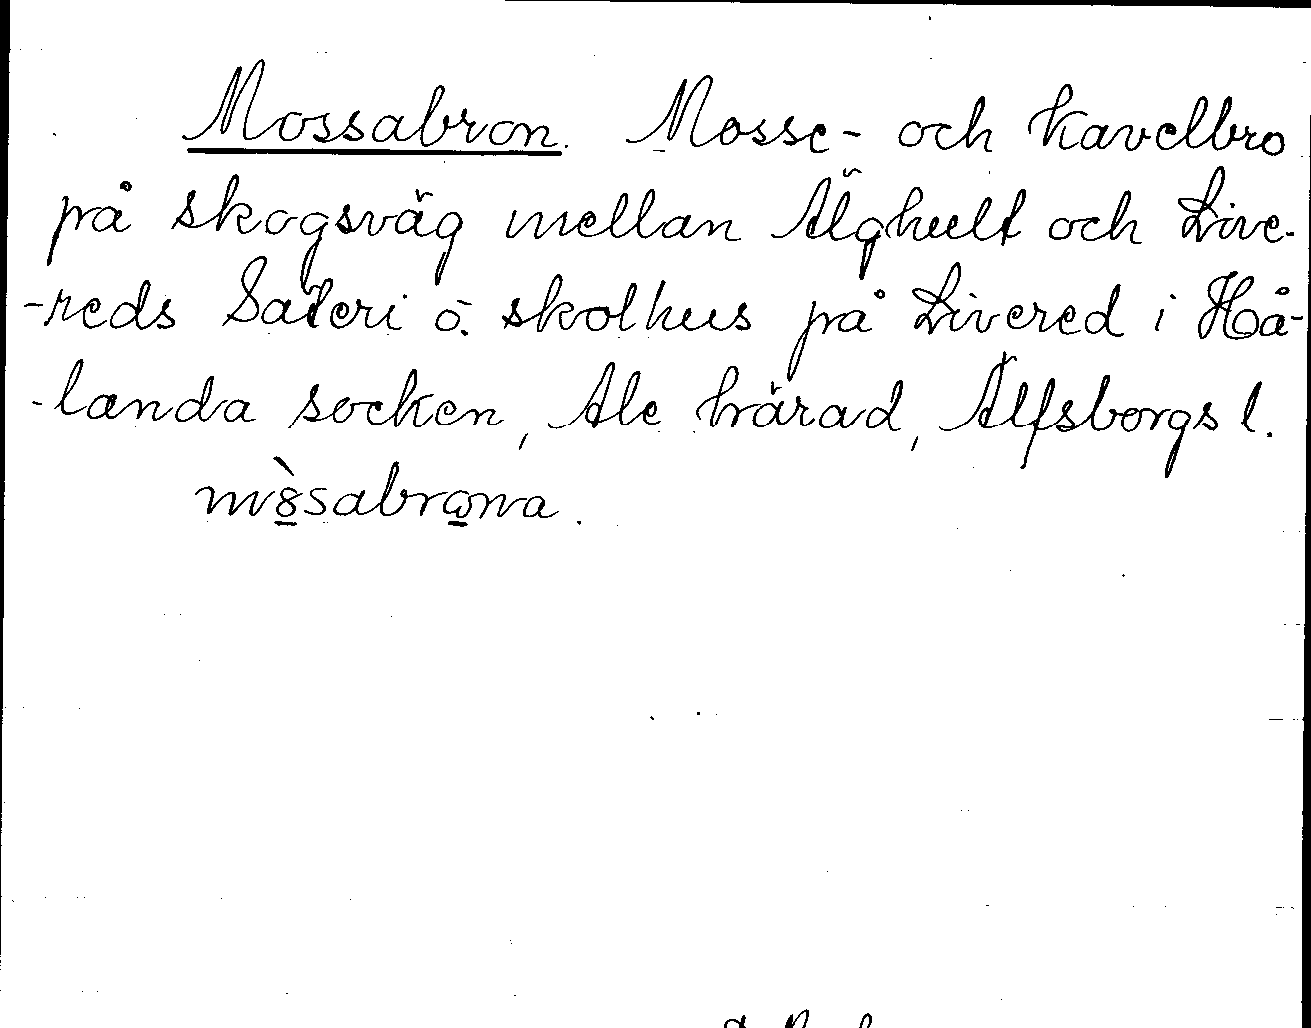 Mossabron. Mosse- och kavelbro
på skogsväg mellan Älghult och Live-
-reds Säteri o. skolhus på Livered i Hå-
-landa socken, Ale härad, Älfsborgs l.